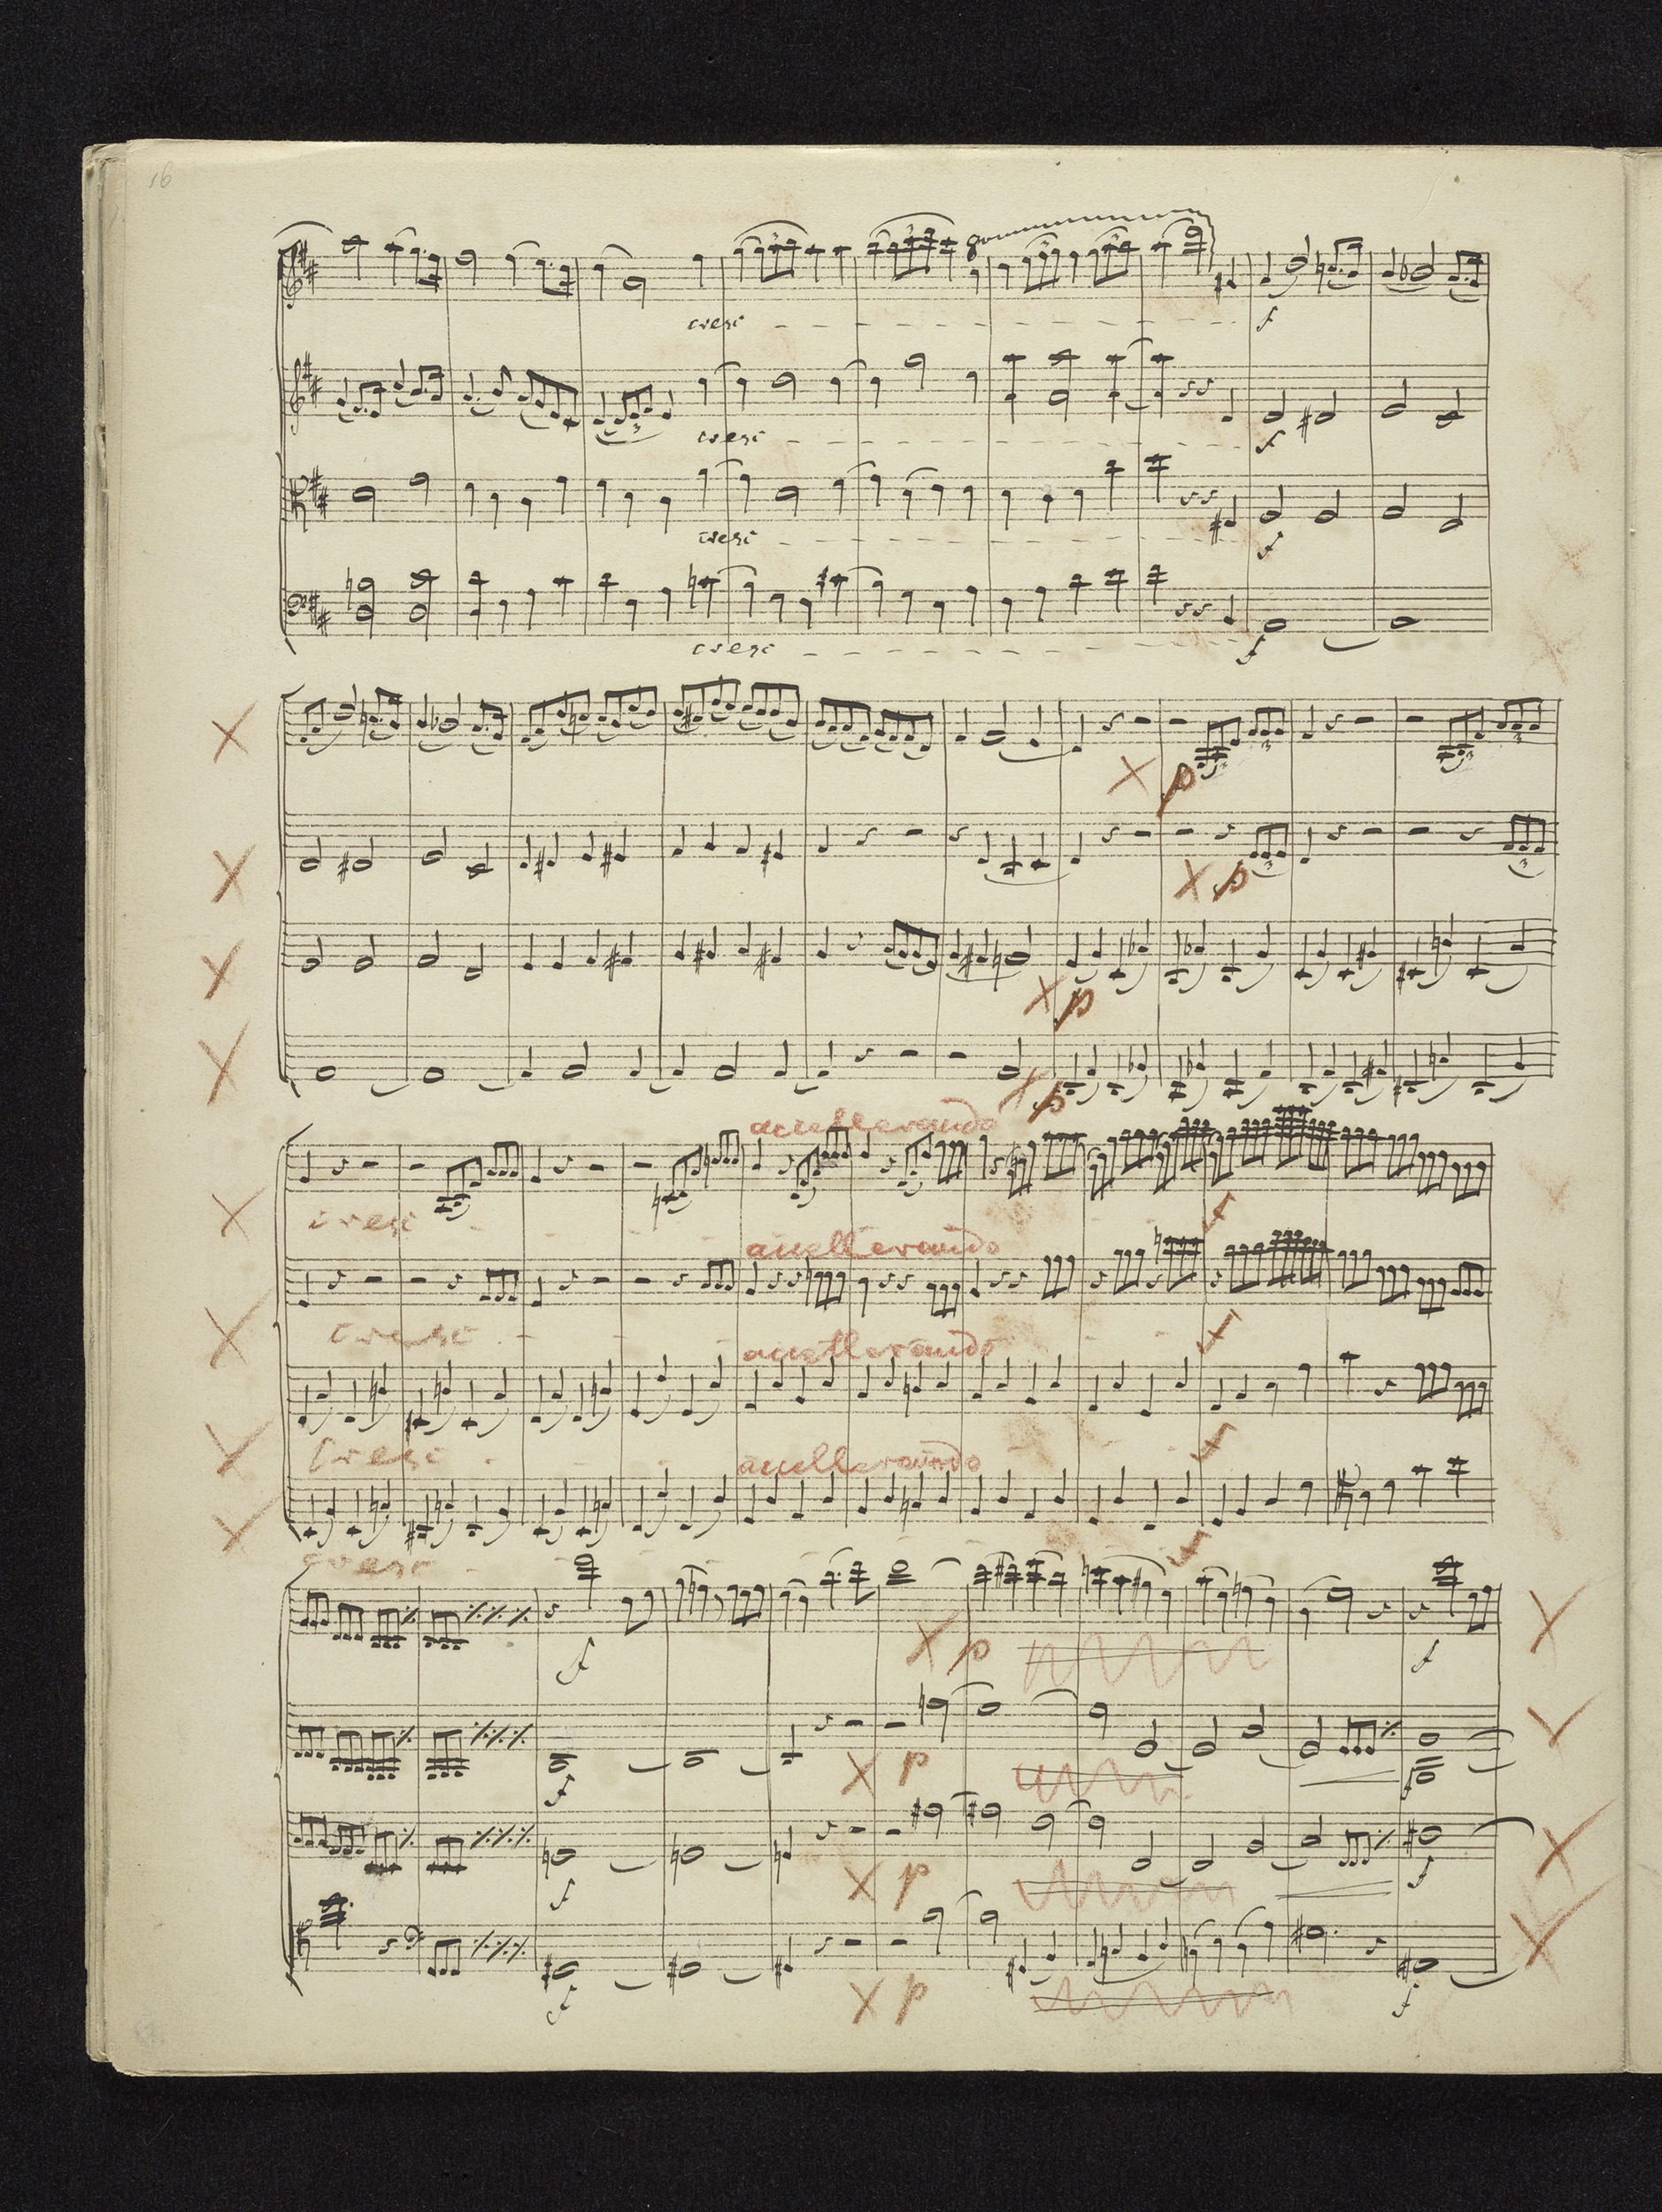 16
8
cresc
f
3
cresc
f
cresc
f
cresc
f
p
3
3
3
3
p
3
3
p
p
accellerando
cresc
f
accellerando
cresc
f
accellerando
cresc
f
accellerando
cresc
f
f
p
f
f
p
f
f
p
f
f
p
f